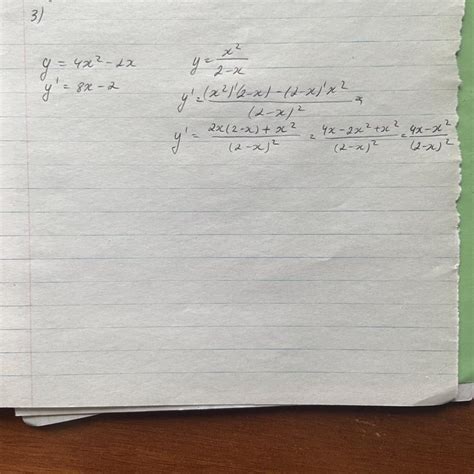 3)
y = 4x² - 2x
y' = 8x - 2
y = x²/(2-x)
y' = ((x²)'(2-x) - (2-x)'x²)/(2-x)² =
y' = (2x(2-x) + x²)/(2-x)² = (4x - 2x² + x²)/(2-x)² = (4x - x²)/(2-x)²